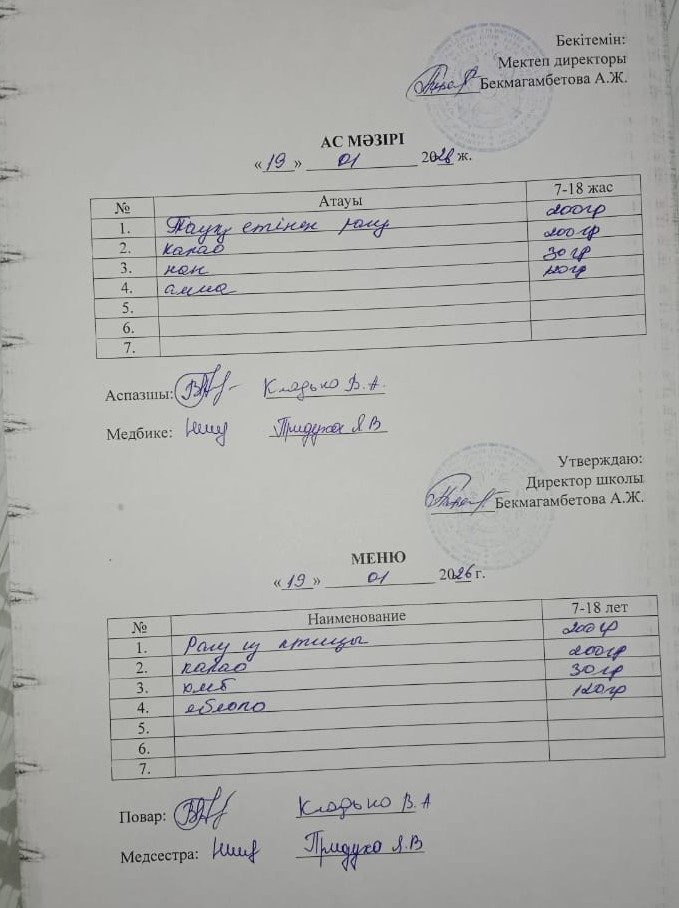 Бекітемін:
Мектеп директоры
Бекмагамбетова А.Ж.
АС МӘЗІРІ
«19» 01 2026 ж.
№ Атауы 7-18 жас
1. Тауық етінен рагу 200гр
2. какао 200гр
3. нан 30гр
4. алма 120гр
5.
6.
7.
Аспазшы: Кладько В.А.
Медбике: Придухо Я.В
Утверждаю:
Директор школы
Бекмагамбетова А.Ж.
МЕНЮ
«19» 01 2026 г.
№ Наименование 7-18 лет
1. Рагу из птицы 200гр
2. какао 200гр
3. хлеб 30гр
4. яблоко 120гр
5.
6.
7.
Повар: Кладько В.А
Медсестра: Придухо Я.В